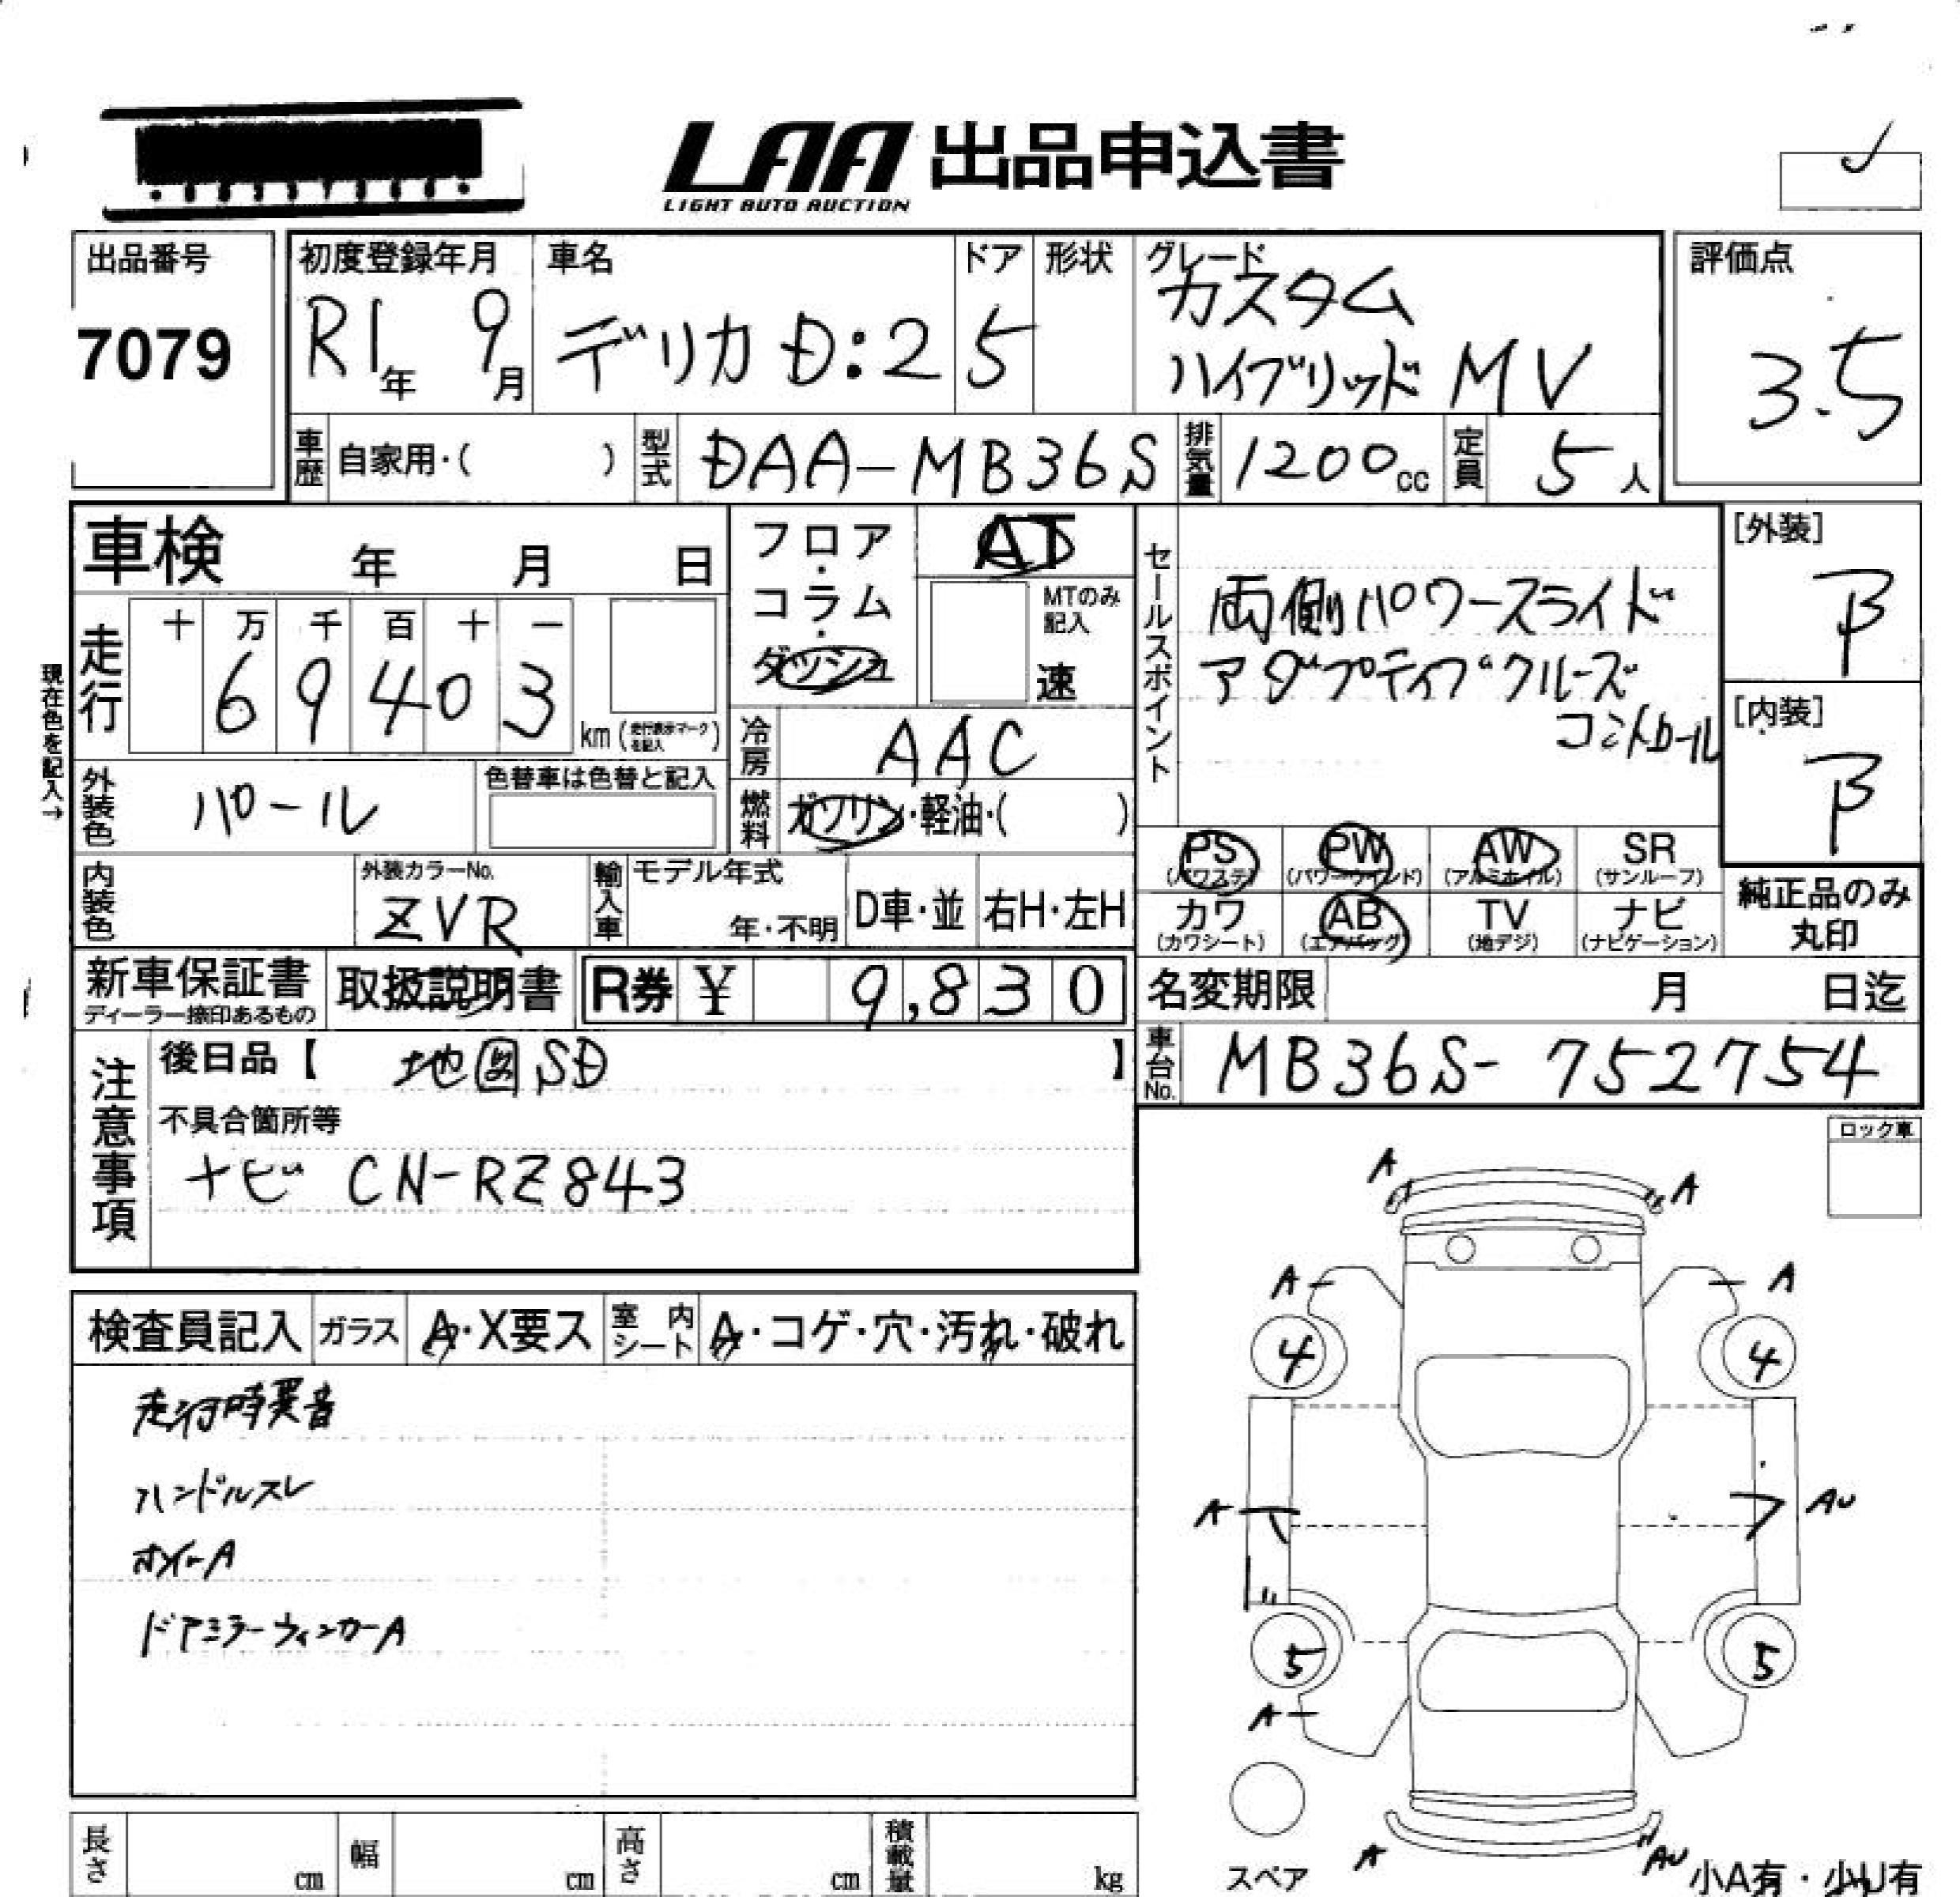 LAA 出品申込書
LIGHT AUTO AUCTION
出品番号
7079
初度登録年月
R1年 9月
車名
デリカD:2
ドア
5
形状
グレード
カスタム
ハイブリッド MV
評価点
3.5
車歴 自家用・( )
型式 DAA-MB36S
排気量 1200cc
定員 5人
車検 年 月 日
フロア・コラム・ダッシュ
AT
MTのみ記入
速
セールスポイント
両側パワースライド
アダプティブクルーズ
コントロール
[外装]
B
[内装]
B
現在色を記入→
走行
十 万 千 百 十 一
6 9 4 0 3
km (走行表示マークを記入)
冷房 AAC
燃料 ガソリン・軽油・( )
外装色 パール
色替車は色替と記入
内装色
外装カラーNo.
ZVR
輸入車
モデル年式
年・不明
D車・並
右H・左H
PS (パワステ)
PW (パワーウインド)
AW (アルミホイル)
SR (サンルーフ)
カワ (カワシート)
AB (エアバッグ)
TV (地デジ)
ナビ (ナビゲーション)
純正品のみ
丸印
新車保証書
ディーラー捺印あるもの
取扱説明書
R券 ¥ 9,830
名変期限 月 日迄
車台No. MB36S-752754
注意事項
後日品【 地図SD 】
不具合箇所等
ナビ CN-RZ843
ロック車
検査員記入
ガラス A・X要ス
室内シート A・コゲ・穴・汚れ・破れ
走行時異音
ハンドルスレ
ホイールA
ドアミラーウィンカーA
A A
A A
4 4
A AU
5 5
A
A AU
スペア
小A有・少U有
長さ cm
幅 cm
高さ cm
積載量 kg